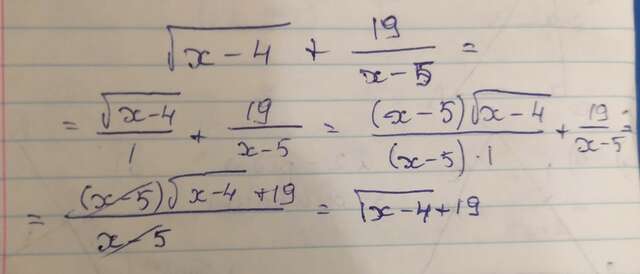 √(x-4) + 19/(x-5) =
= √(x-4)/1 + 19/(x-5) = (x-5)√(x-4)/((x-5)·1) + 19/(x-5) =
= ((x-5)√(x-4) + 19)/(x-5) = √(x-4) + 19